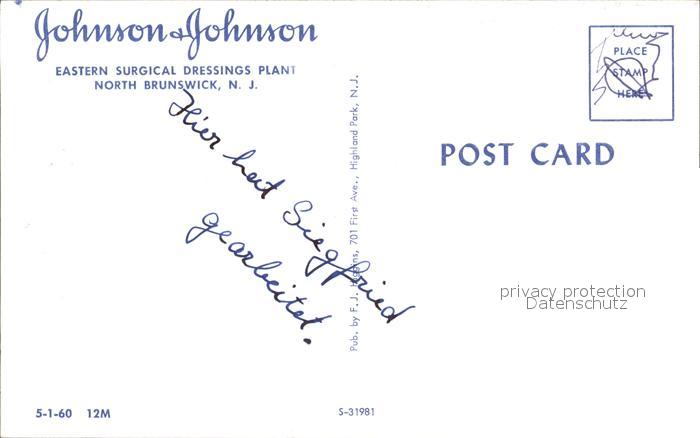 Johnson & Johnson
EASTERN SURGICAL DRESSINGS PLANT
NORTH BRUNSWICK, N. J.
PLACE
STAMP
HERE
POST CARD
Hier hat Siegfried
gearbeitet.
Pub. by F.J. Higgins, 701 First Ave., Highland Park, N.J.
privacy protection
Datenschutz
5-1-60 12M
S-31981